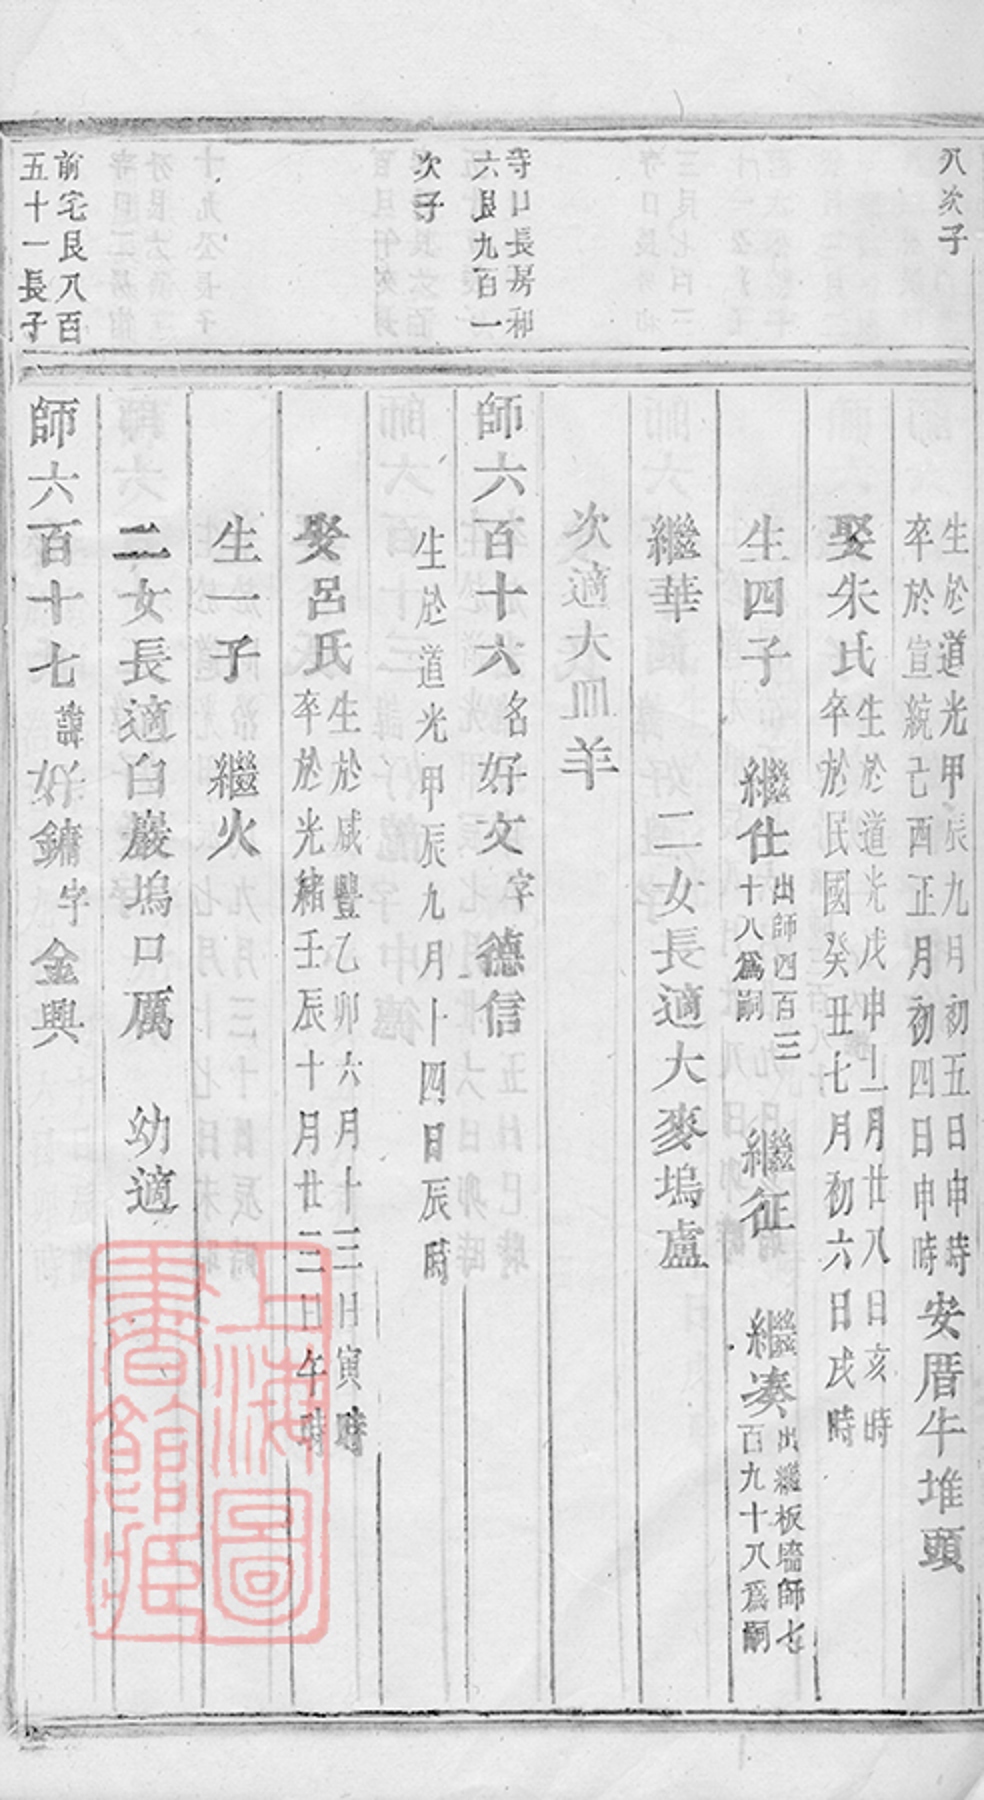 八次子
生於道光甲辰九月初五日申時
卒於宣統己酉正月初四日申時
安厝牛堆頭
娶朱氏
生於道光戊申十一月廿八日亥時
卒於民國癸丑七月初六日戌時
生四子 繼仕
出師四百三
十八爲嗣
繼征 繼湊
出繼板墻師七
百九十八爲嗣
繼華 二女長適大麥塢盧
次適大皿羊
寺口長房和
六良九百一
次子
師六百十六名好文字德信
生於道光甲辰九月十四日辰時
娶呂氏
生於咸豐乙卯六月十三日寅時
卒於光緒壬辰十月廿三日午時
生一子 繼火
二女長適白巖塢口厲 幼適
前宅良八百
五十一長子
師六百十七諱好鏞字金興
上海圖
書館藏